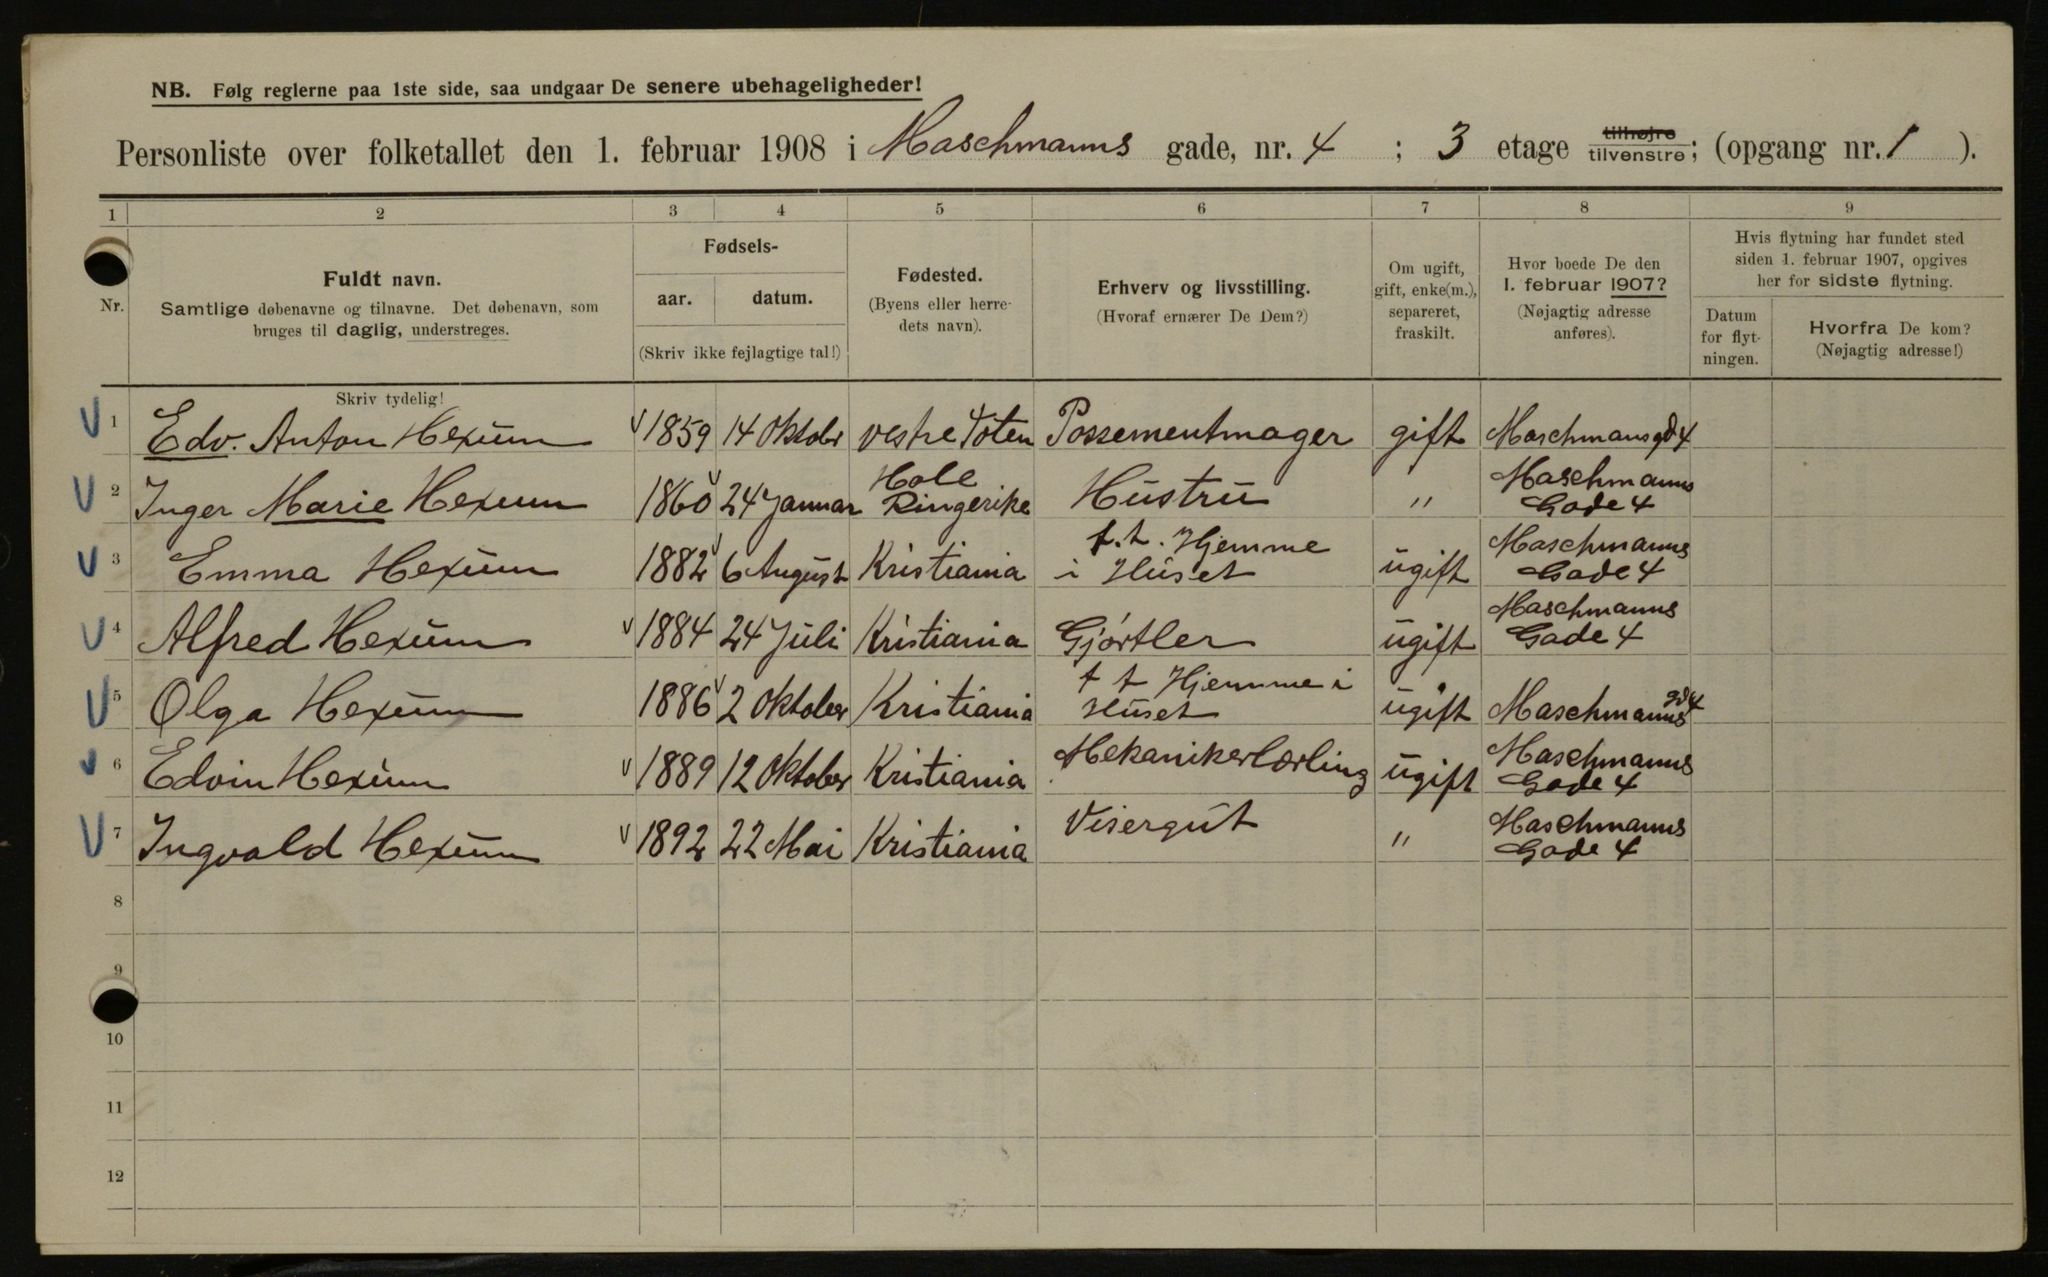 NB. Følg reglerne paa 1ste side, saa undgaar De senere ubehageligheder!
Personliste over folketallet den 1. februar 1908 i Maschmanns gade, nr. 4 ; 3 etage tilhøjre tilvenstre; (opgang nr. 1 ).
1 2 3 4 5 6 7 8 9
Nr.
Fuldt navn.
Samtlige døbenavne og tilnavne. Det døbenavn, som
bruges til daglig, understreges.
Skriv tydelig!
Fødsels-
aar. datum.
(Skriv ikke fejlagtige tal!)
Fødested.
(Byens eller herre-
dets navn).
Erhverv og livsstilling.
(Hvoraf ernærer De Dem?)
Om ugift,
gift, enke(m.),
separeret,
fraskilt.
Hvor boede De den
1. februar 1907?
(Nøjagtig adresse
anføres).
Hvis flytning har fundet sted
siden 1. februar 1907, opgives
her for sidste flytning.
Datum
for flyt-
ningen.
Hvorfra De kom?
(Nøjagtig adresse!)
1 Edv. Anton Hexum 1859 14 Oktobr vestre Toten Possementmager gift Maschmans gd 4
2 Inger Marie Hexum 1860 24 Januar Hole Ringerike Hustru " Maschmanns Gade 4
3 Emma Hexum 1882 6 August Kristiania t.t. Hjemme i Huset ugift Maschmanns Gade 4
4 Alfred Hexum 1884 24 Juli Kristiania Gjørtler ugift Maschmanns Gade 4
5 Olga Hexum 1886 2 Oktober Kristiania t t Hjemme i Huset ugift Maschmanns gd 4
6 Edvin Hexum 1889 12 Oktober Kristiania Mekanikerlærling ugift Maschmanns Gade 4
7 Ingvald Hexum 1892 22 Mai Kristiania Visergut " Maschmanns Gade 4
8
9
10
11
12